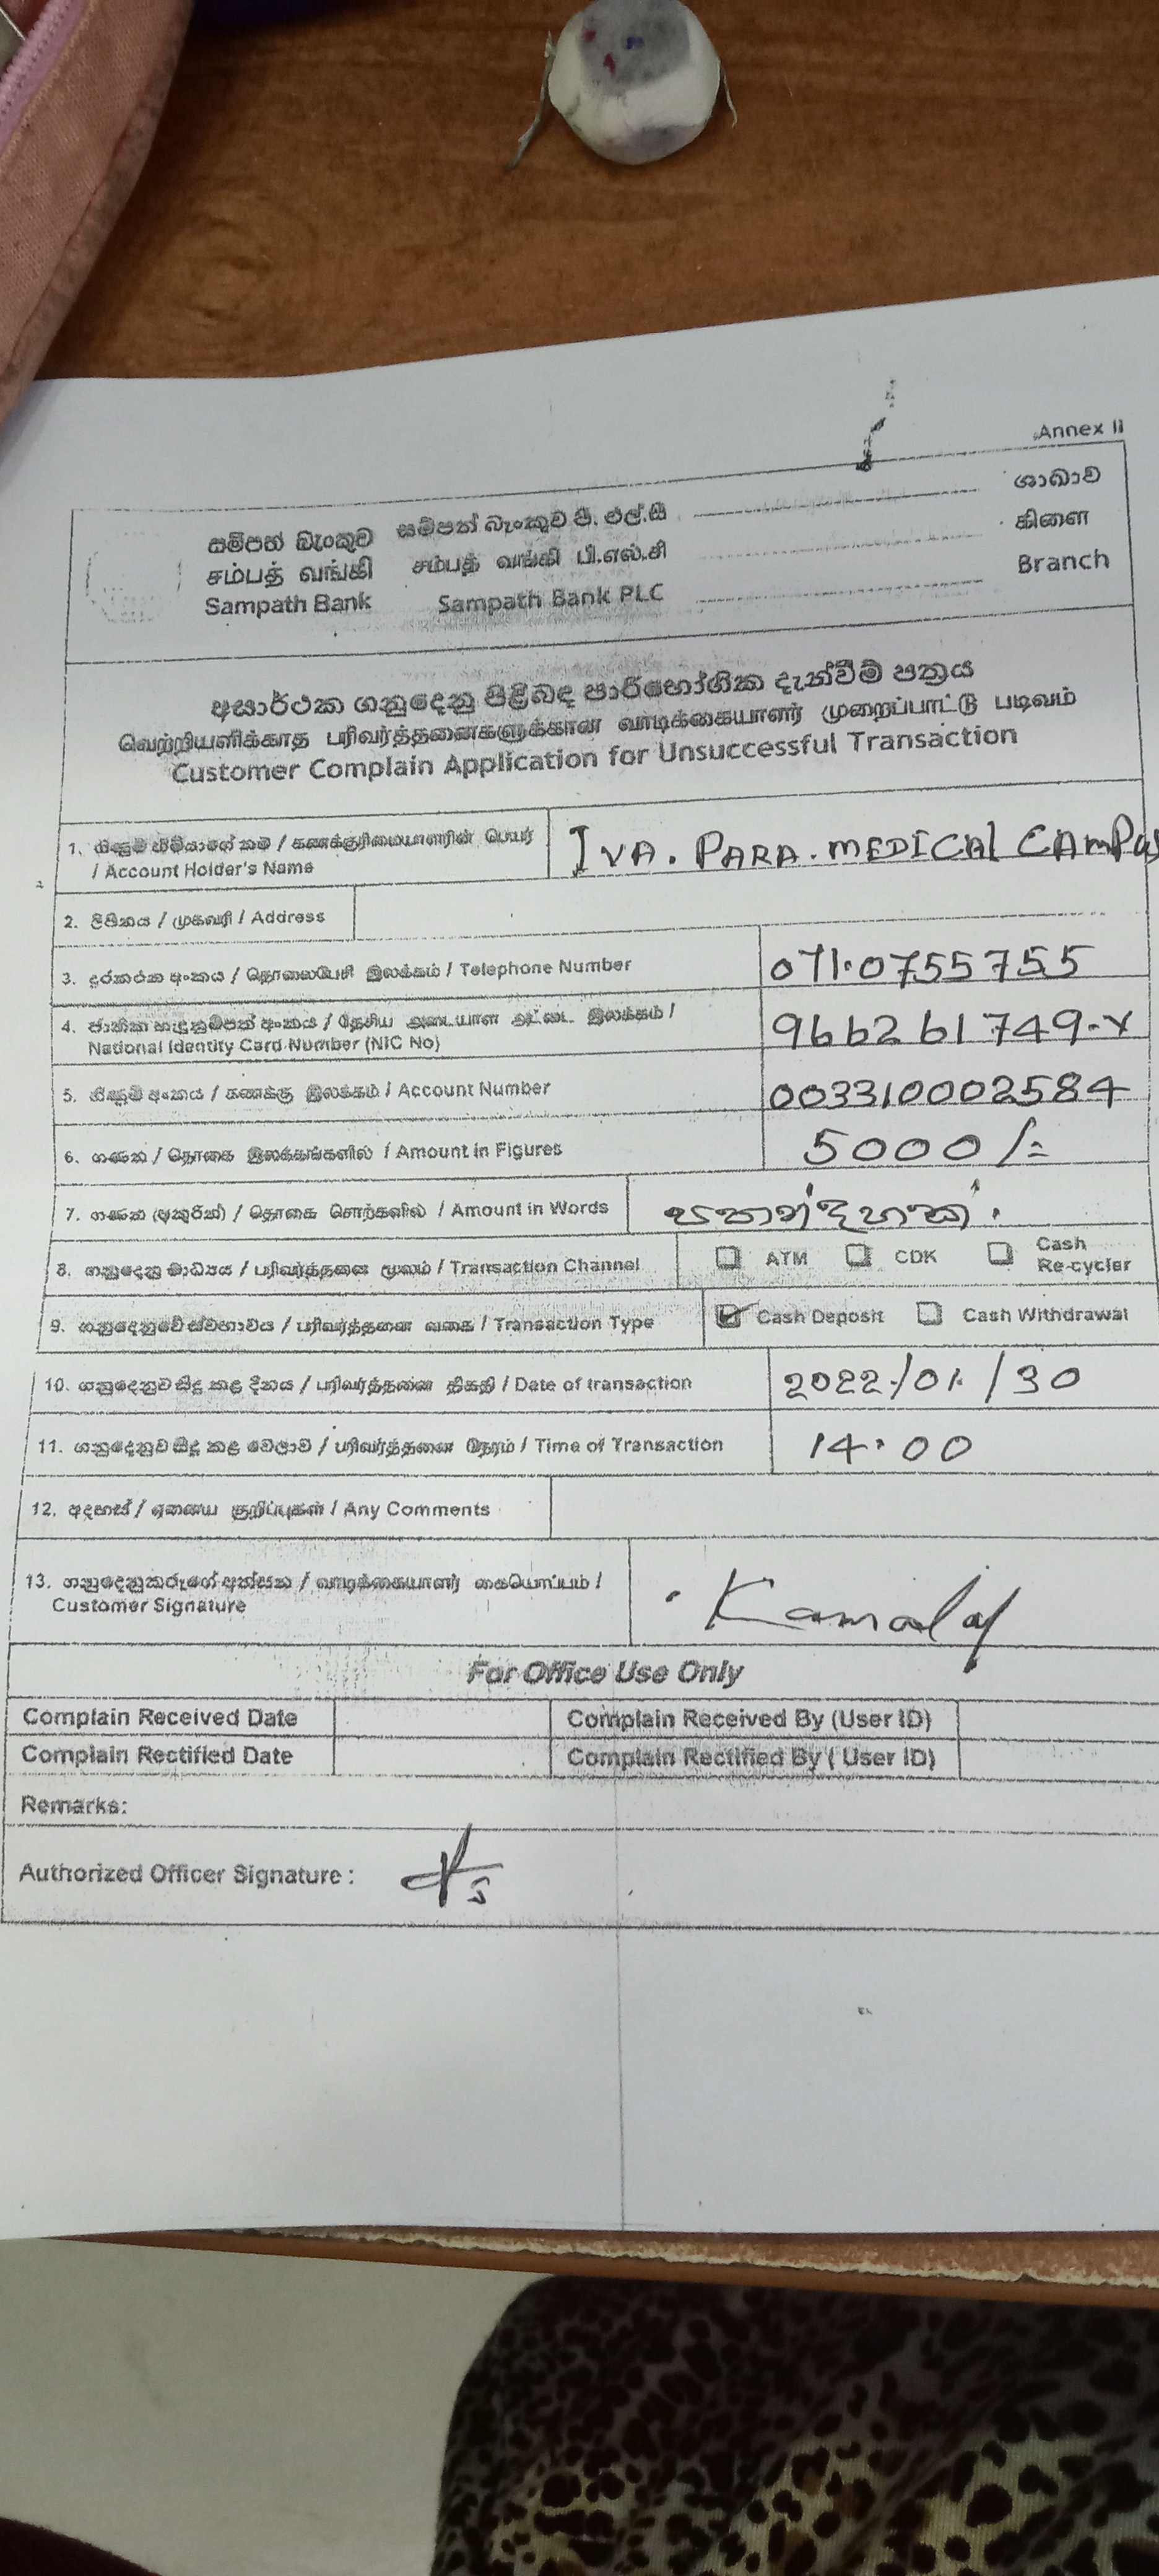 Annex II
සම්පත් බැංකුව සම්පත් බැංකුව පී. එල්.සී ශාඛාව
சம்பத் வங்கி சம்பத் வங்கி பி.எல்.சி கிளை
Sampath Bank Sampath Bank PLC Branch
අසාර්ථක ගනුදෙනු පිළිබඳ පාරිභෝගික දැන්වීම් පත්‍රය
வெற்றியளிக்காத பரிவர்த்தனைகளுக்கான வாடிக்கையாளர் முறைப்பாட்டு படிவம்
Customer Complain Application for Unsuccessful Transaction
1. ගිණුම් හිමියාගේ නම / கணக்குரிமையாளரின் பெயர்
/ Account Holder's Name IVA. PARA. MEDICAL CAMPUS
2. ලිපිනය / முகவரி / Address
3. දුරකථන අංකය / தொலைபேசி இலக்கம் / Telephone Number 071.0755755
4. ජාතික හැඳුනුම්පත් අංකය / தேசிய அடையாள அட்டை இலக்கம் /
National Identity Card Number (NIC No) 966261749-V
5. ගිණුම් අංකය / கணக்கு இலக்கம் / Account Number 003310002584
6. ගණන / தொகை இலக்கங்களில் / Amount in Figures 5000/=
7. ගණන (අකුරින්) / தொகை சொற்களில் / Amount in Words
8. ගනුදෙනු මාධ්‍යය / பரிவர்த்தனை மூலம் / Transaction Channel ATM CDK Cash Re-cycler
9. ගනුදෙනුවේ ස්වභාවය / பரிவர்த்தனை வகை / Transaction Type Cash Deposit Cash Withdrawal
10. ගනුදෙනුව සිදු කළ දිනය / பரிவர்த்தனை திகதி / Date of transaction 2022/01/30
11. ගනුදෙනුව සිදු කළ වේලාව / பரிவர்த்தனை நேரம் / Time of Transaction 14.00
12. අදහස් / ஏனைய குறிப்புகள் / Any Comments
13. ගනුදෙනුකරුගේ අත්සන / வாடிக்கையாளர் கையொப்பம் /
Customer Signature
For Office Use Only
Complain Received Date Complain Received By (User ID)
Complain Rectified Date Complain Rectified By ( User ID)
Remarks:
Authorized Officer Signature :